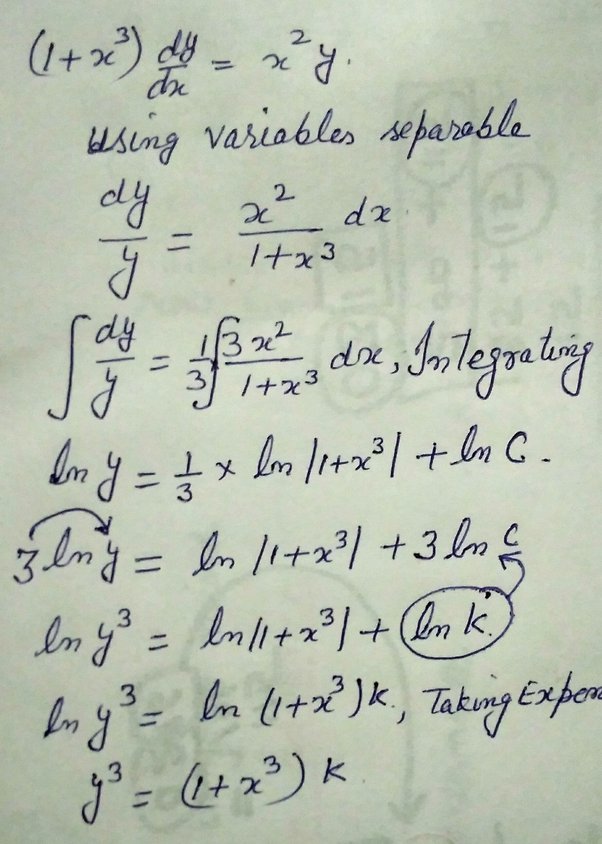 (1+x³) dy/dx = x²y.
Using variables separable
dy/y = x²/1+x³ dx.
∫ dy/y = 1/3 ∫ 3x²/1+x³ dx, Integrating
ln y = 1/3 × ln |1+x³| + ln C.
3 ln y = ln |1+x³| + 3 ln C
ln y³ = ln |1+x³| + ln K.
ln y³ = ln (1+x³) K., Taking Expon
y³ = (1+x³) K